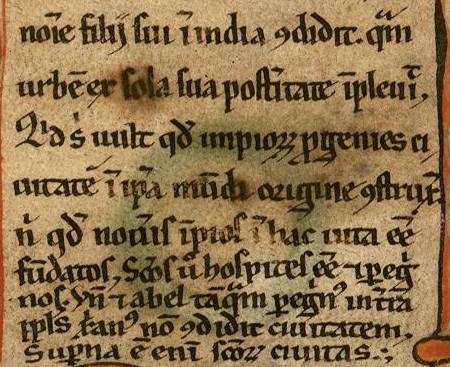 noīe filij sui ī india ꝯdidit. quā
urbē ex sola sua postītate īpleuit̄,
Qid s̄ uult qđ impioꝝ ꝓgenies ci
uitatē ī ip̄a mūdi origine ꝯstrux̄.
n̄ qđ nou̾is īpios ī hac uita eē
fūdatos, Sc̄os u̾ hospites eē ⁊ ꝑeg̾
nos. Vn̄ ⁊ abel tāq̄m ꝑegn̾ꝰ in t̾ra
ppl̄s xānꝰ nō ꝯdidit ciuitatem.
Suꝑna ē enī sc̄oꝝ ciuitas.;